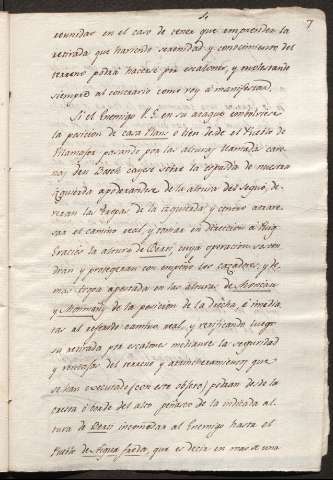 7
reunidas en el caso de tener que emprender la
retirada que haviendo serenidad y conocimiento del
terreno podrá hacerse por escalones, y molestando
siempre al contrario como voy a manifestar.
Si el Enemigo P. E. en su ataque embistiese
la posicion de casa Plans o bien desde el Pueblo de
Vilamajor pasando por las alturas llamada
can Bosch cayese sobre la espalda de nuestra
izquierda apoderandose de la altura del Segué, de-
veran las tropas de la izquierda y centro atrave-
sar el camino real, y tomar en direccion a Puig
Gracios la altura de Deas, cuya operacion sosten-
dran y protegeran con empeño los cazadores, y de-
mas tropa apostada en las alturas de Moncau
y Monmany de la posicion de la derecha, e imedia-
tas al referido camino real, y verificando luego
su retirada por escalones mediante la seguridad
y ventajas del terreno y atrincheramientos que
se han executado (con este objeto) podran desde la
cresta o borde del alto peñasco de la indicada al-
tura de Deas incomodar al Enemigo hasta el
Puesto de Aygua freda, que es decir en mas de una